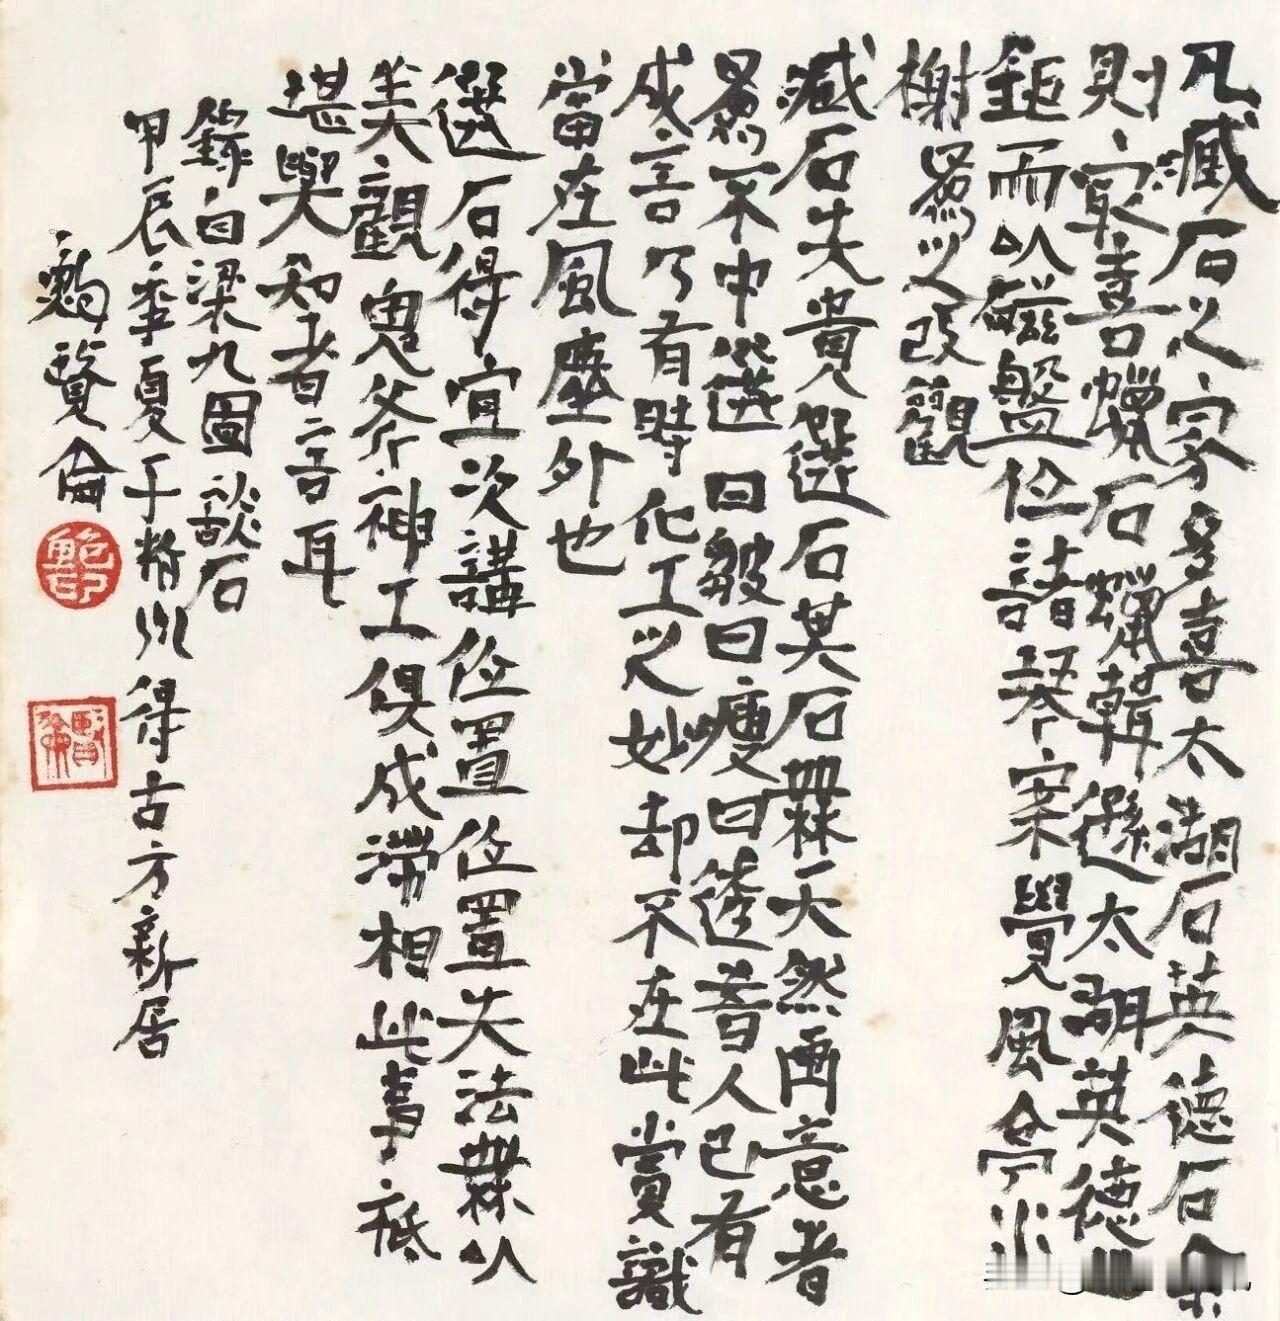 凡藏石之家多喜太湖石英德石余
則最喜蠟石蠟韓遜太湖英德
鉅而以磁盤位諸琴案覺風亭水
榭為之改觀
藏石先貴選石其石無天然畫意者
為不中選曰皺曰瘦曰透昔人已有
成言乃有時化工之妙却不在此賞識
當在風塵外也
選石得宜次講位置位置失法無以
美觀鬼斧神工俱成滯相此事祗
堪與知者言耳
錄自梁九圖談石
甲辰季夏于 州得古方新居
覽侖